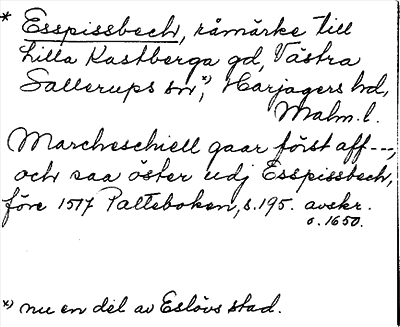 * Esspissbech, råmärke till
Lilla Kastberga gd, Västra
Sallerups sn *), Harjagers hd,
Malm. l.
Marcheschiell gaar först aff ---,
och saa öster udj Esspissbech,
före 1517 Palteboken, s. 195. avskr.
o. 1650.
*) nu en del av Eslövs stad.